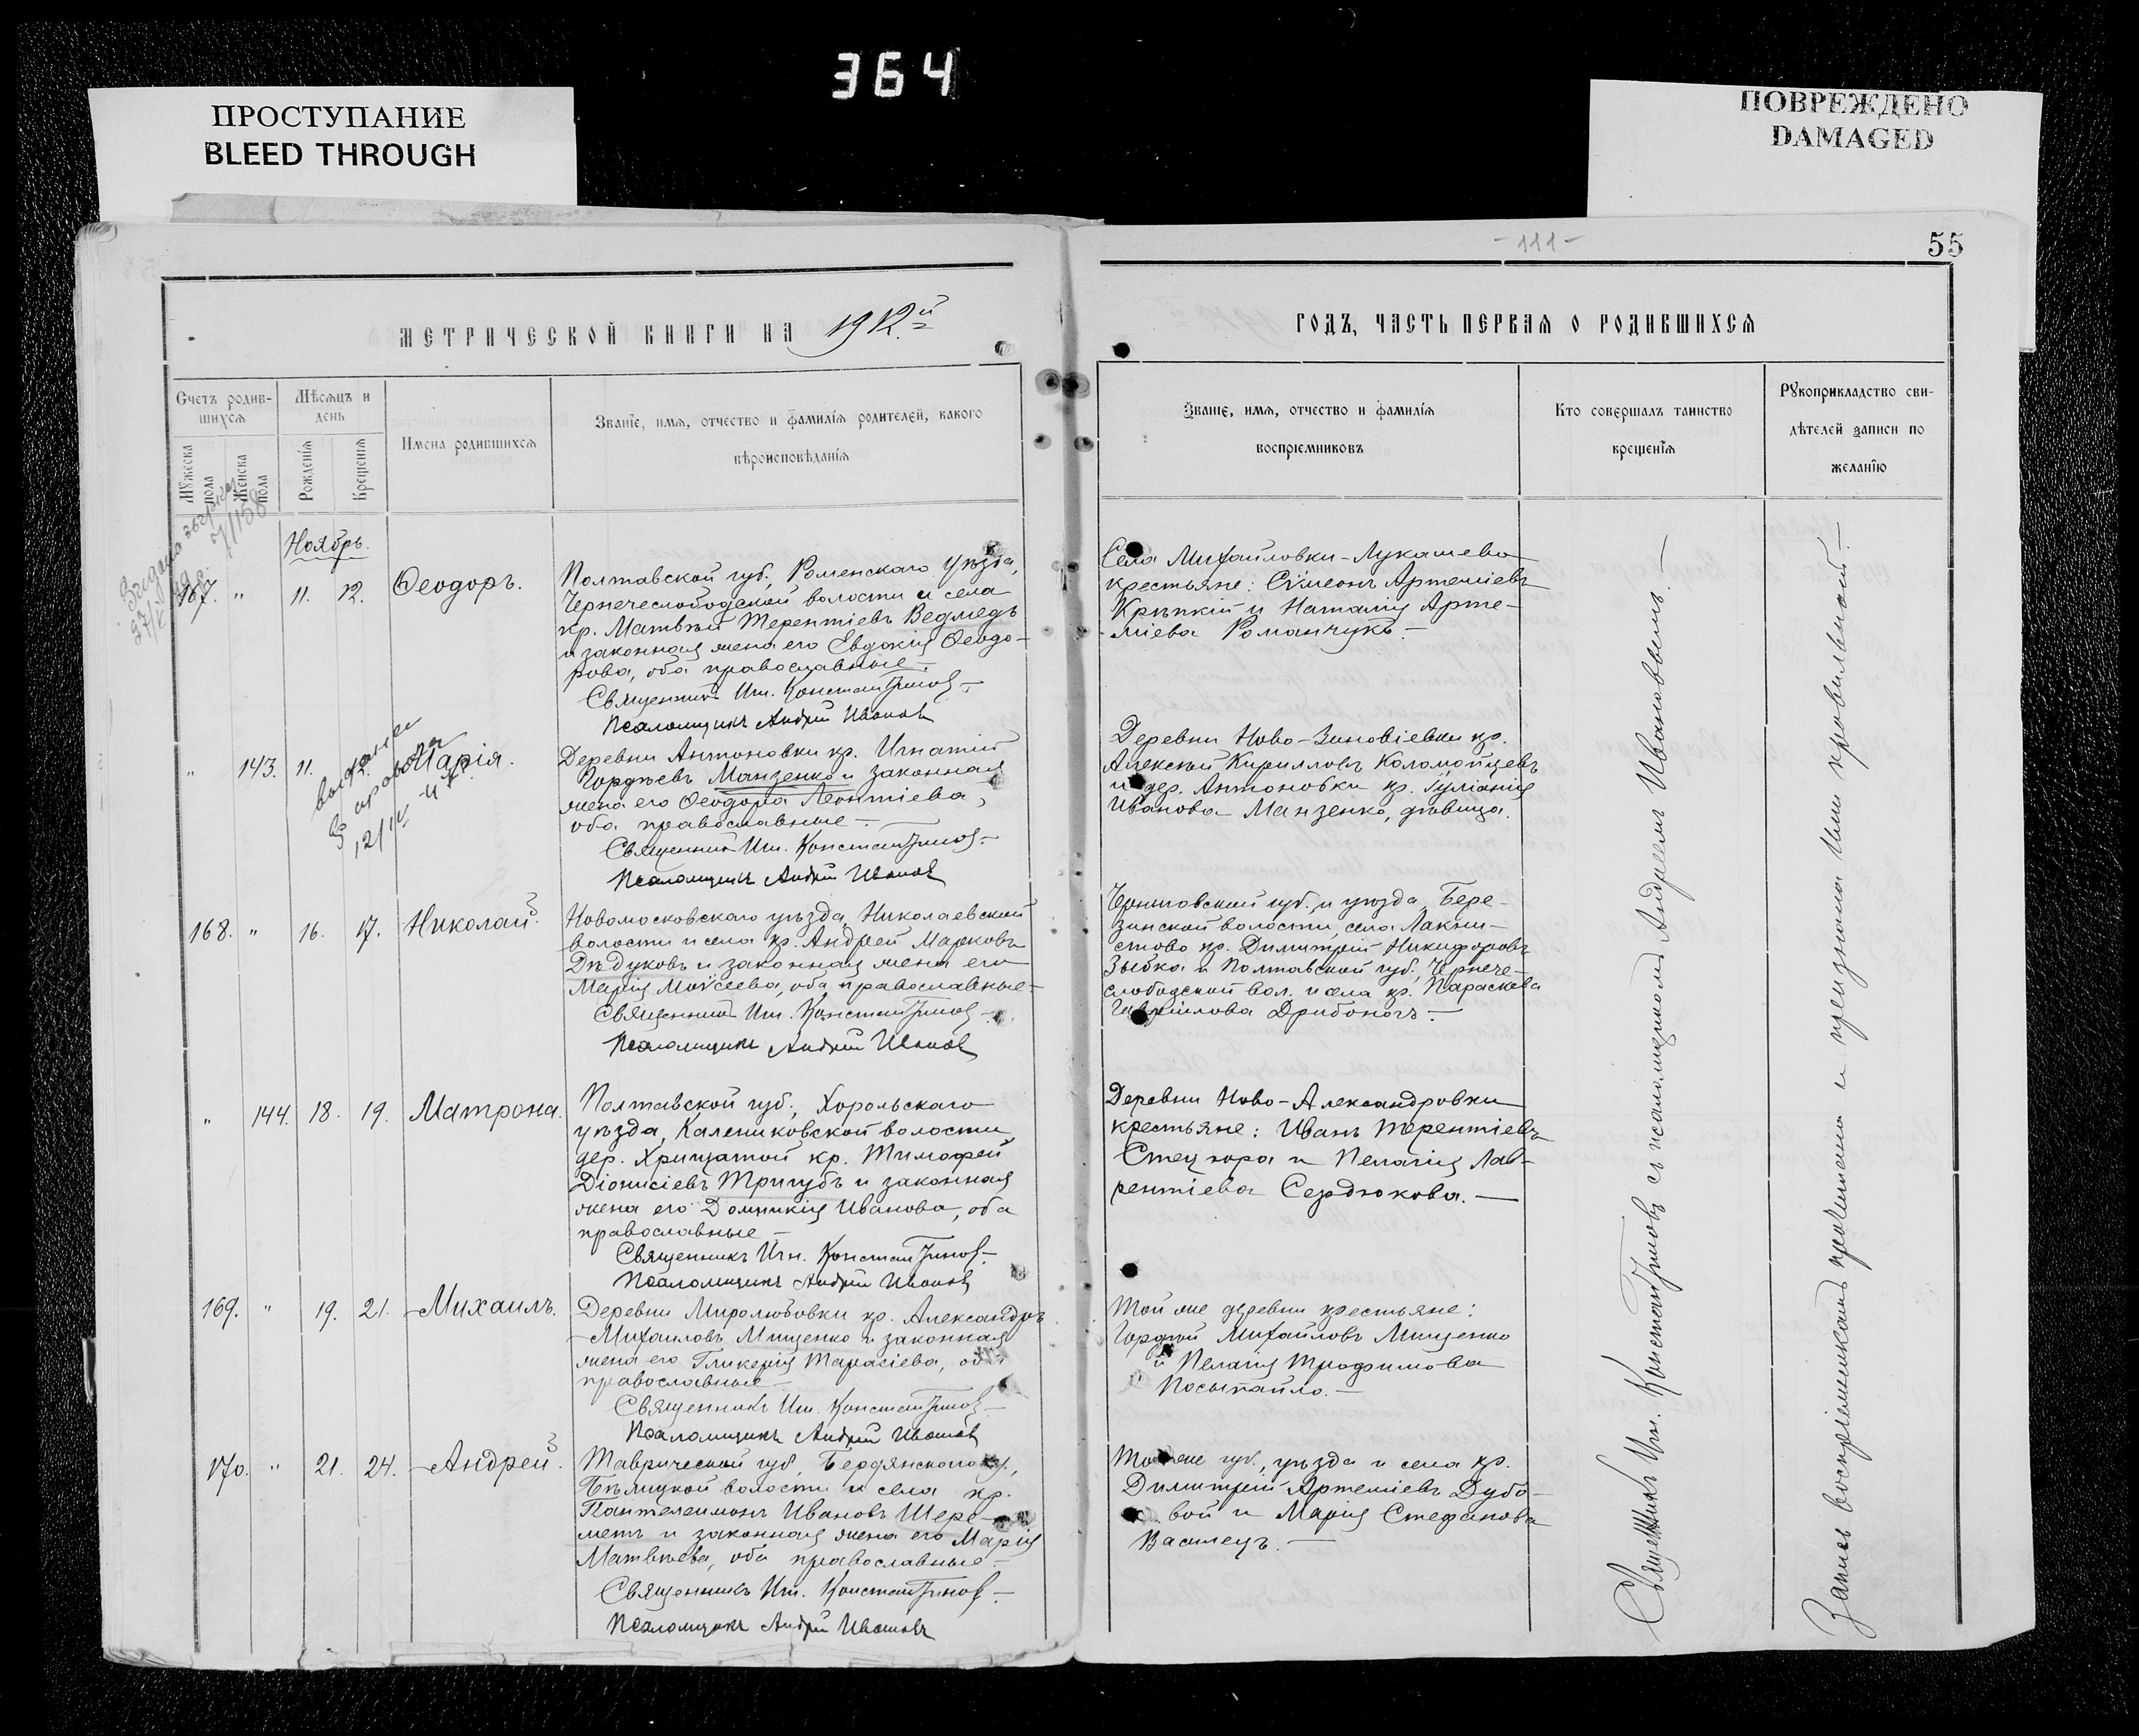 364
ПРОСТУПАНИЕ
BLEED THROUGH
ПОВРЕЖДЕНО
DAMAGED
-111-
55
МЕТРИЧЕСКОЙ КНИГИ НА 1912.й
ГОДЪ, ЧАСТЬ ПЕРВАЯ О РОДИВШИХСЯ
Счетъ родив-
шихся
Мужеска
пола
Женска
пола
Мѣсяцъ и
день
Рожденія
Крещенія
Имена родившихся
Званіе, имя, отчество и фамилія родителей, какого
вѣроисповѣданія
Званіе, имя, отчество и фамилія
воспріемниковъ
Кто совершалъ таинство
крещенія
Рукоприкладство сви-
дѣтелей записи по
желанію
Ноябрь.
167. " 11. 12. Ѳеодоръ.
Полтавской губ., Роменскаго уѣзда,
Чернечеслободской волости и села
кр. Матвѣй Терентіевъ Ведмедь
и законная жена его Евдокія Ѳеодо-
рова, оба православные.
Священникъ Игн. Константиновъ.
Псаломщикъ Андрей Ивановъ
Села Михайловки-Лукашево
крестьяне: Сѵмеонъ Артеміевъ
Крѣпкій и Наталія Арте-
міева Романчукъ.
" 143. 11. 12. Марія.
12/IV
Деревни Антоновки кр. Игнатій
Гордѣевъ Манзенко и законная
жена его Ѳеодора Леонтіева,
оба православные.
Священникъ Игн. Константиновъ.
Псаломщикъ Андрей Ивановъ
Деревни Ново-Зиновіевки кр.
Алексѣй Кирилловъ Коломойцевъ
и дер. Антоновки кр. Іуліанія
Иванова Манзенко, дѣвица.
168. " 16. 17. Николай.
Новомосковскаго уѣзда, Николаевской
волости и села кр. Андрей Марковъ
Дѣдуковъ и законная жена его
Марія Моѵсеева, оба православные
Священникъ Игн. Константиновъ
Псаломщикъ Андрей Ивановъ
Черниговской губ. и уѣзда, Бере-
зинской волости, села
кр. Димитрій Никифоровъ
Зыбка и Полтавской губ., Чернече-
слободской вол. и села кр. Параскева
Гавріилова Дрибоногъ.
" 144. 18. 19. Матрона.
Полтавской губ., Хорольскаго
уѣзда, Калениковской волости
дер. Хрищатой кр. Тимофей
Діонисіевъ Тригубъ и законная
жена его Домникія Иванова, оба
православные
Священникъ Игн. Константиновъ.
Псаломщикъ Андрей Ивановъ
Деревни Ново-Александровки
крестьяне: Иванъ Терентіевъ
Стецюра и Пелагія Лав-
рентіева Сердюкова.
169. " 19. 21. Михаилъ.
Деревни Миролюбовки кр. Александръ
Михаиловъ Мищенко и законная
жена его Гликерія Тарасіева, оба
православные
Священникъ Игн. Константиновъ
Псаломщикъ Андрей Ивановъ
Той же деревни крестьяне:
Гордѣй Михайловъ Мищенко
и Пелагія Трофимова
Посыпайло.
170. " 21. 24. Андрей.
Таврической губ., Бердянского у.,
волости и села кр.
Пантелеимонъ Ивановъ Шере-
метъ и законная жена его Марія
Матвѣева, оба православные
Священникъ Игн. Константиновъ.
Псаломщикъ Андрей Ивановъ
Той же губ., уѣзда и села кр.
Димитрій Артеміевъ Дубо-
вой и Марія Стефанова
Василецъ.
Священникъ Игн. Константиновъ съ псаломщикомъ Андреемъ Ивановымъ.
Запись воспріемникамъ прочитана и признана ими правильной.